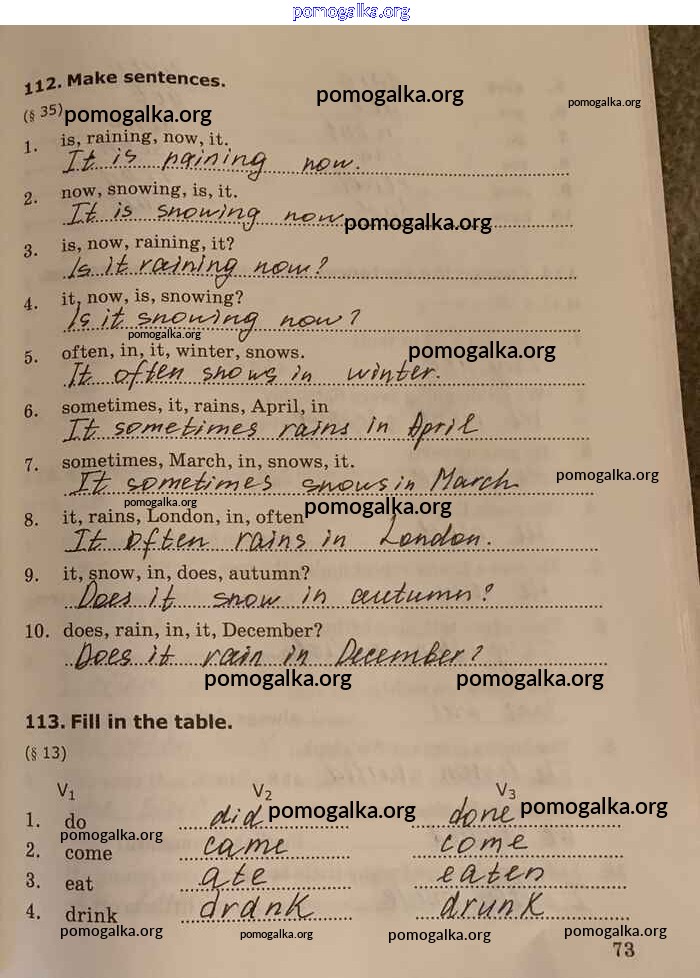 pomogalka.org
112. Make sentences.
pomogalka.org
pomogalka.org
(§ 35) pomogalka.org
1. is, raining, now, it.
It is raining now.
2. now, snowing, is, it.
It is snowing now pomogalka.org
3. is, now, raining, it?
Is it raining now?
4. it, now, is, snowing?
Is it snowing now?
pomogalka.org
5. often, in, it, winter, snows.
pomogalka.org
It often snows in winter.
6. sometimes, it, rains, April, in
It sometimes rains in April
7. sometimes, March, in, snows, it.
It sometimes snows in March
pomogalka.org
pomogalka.org
pomogalka.org
8. it, rains, London, in, often
It often rains in London.
9. it, snow, in, does, autumn?
Does it snow in autumn?
10. does, rain, in, it, December?
Does it rain in December?
pomogalka.org pomogalka.org
113. Fill in the table.
(§ 13)
V1 V2 V3
1. do did pomogalka.org done pomogalka.org
pomogalka.org
2. come came come
3. eat ate eaten
4. drink drank drunk
pomogalka.org pomogalka.org pomogalka.org pomogalka.org
73